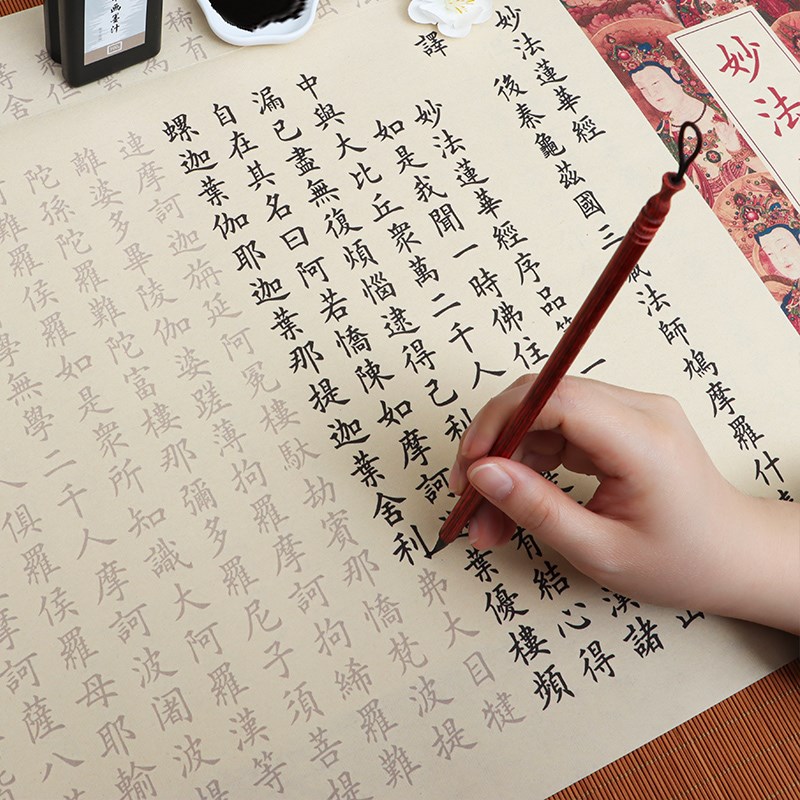 妙法蓮華經
後秦龜茲國三藏法師鳩摩羅什
譯
妙法蓮華經序品第一
如是我聞一時佛住
山
中與大比丘衆萬二千人
漢諸
漏已盡無復煩惱逮得己利
有結心得
自在其名曰阿若憍陳如摩訶迦葉優樓頻
螺迦葉伽耶迦葉那提迦葉舍利弗大目犍
連摩訶迦旃延阿㝹樓馱劫賓那憍梵波提
離婆多畢陵伽婆蹉薄拘羅摩訶拘絺羅難
陀孫陀羅難陀富樓那彌多羅尼子須菩提
難羅侯羅如是衆所知識大阿羅漢等
學無學二千人摩訶波闍波提
人俱羅侯羅母耶輸
摩訶薩八
妙法